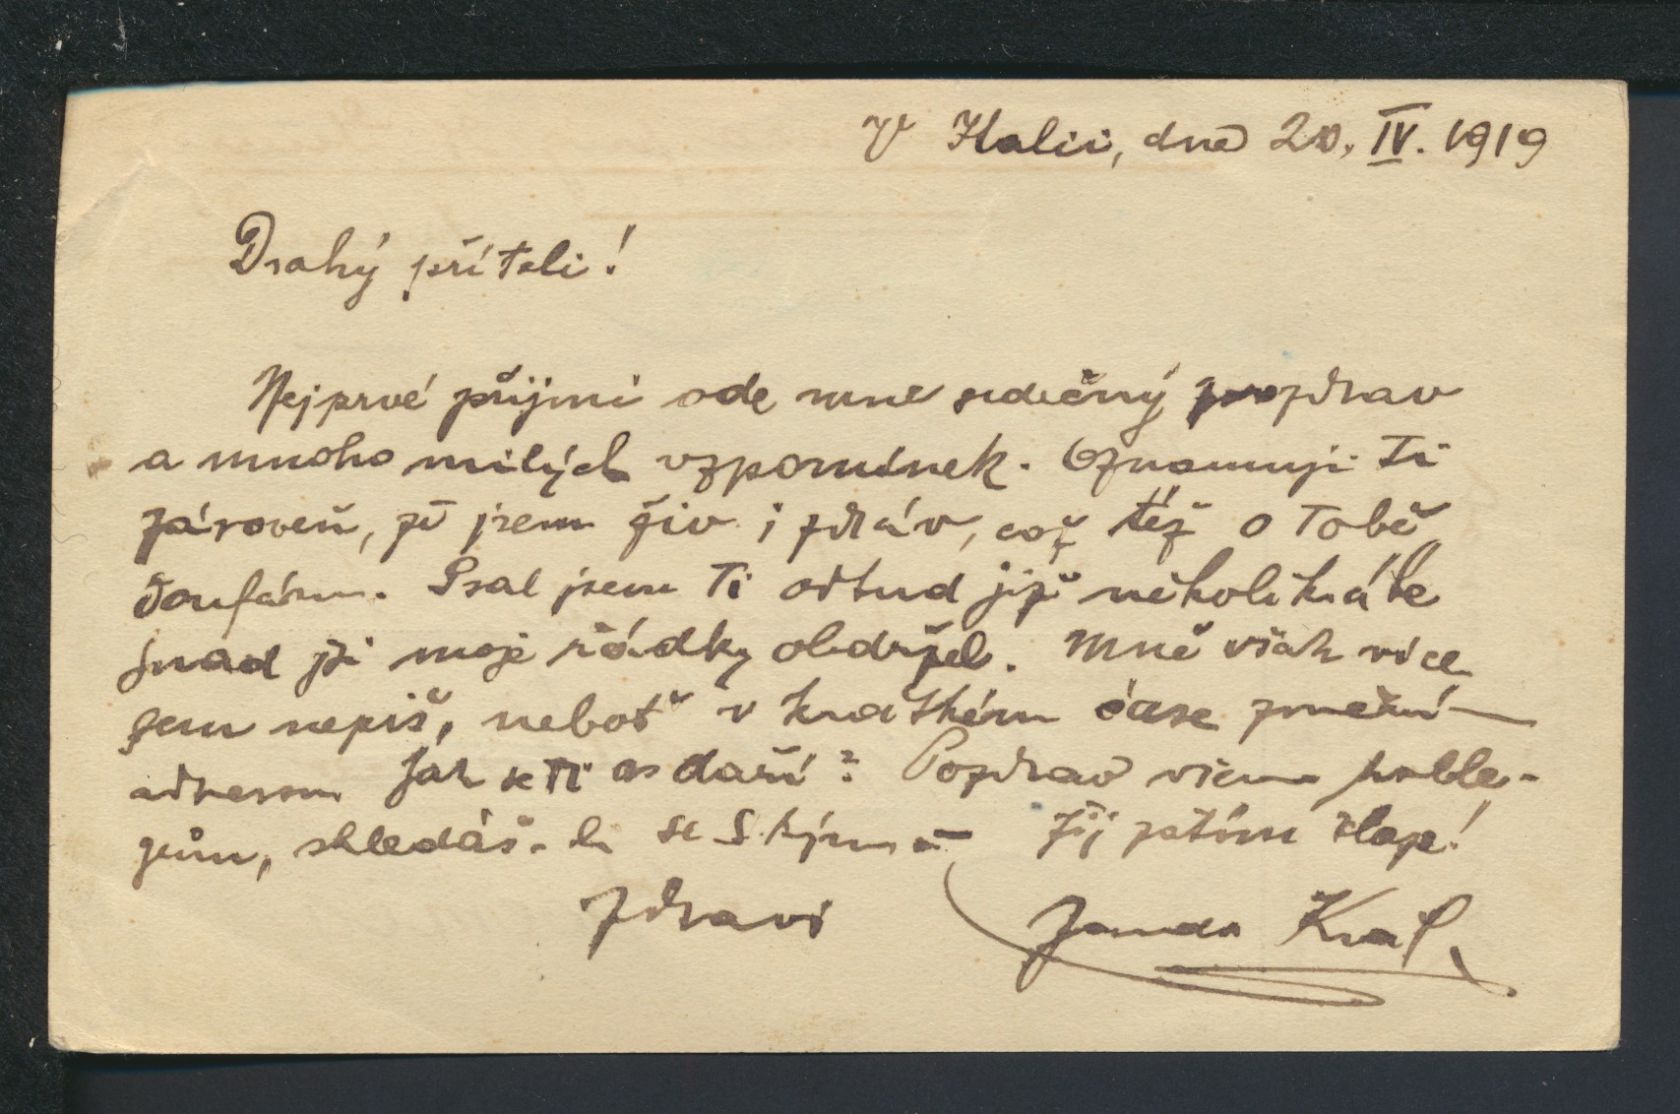 V Haliči, dne 20. IV. 1919
Drahý příteli!
Nejprvé přijmi ode mne srdečný pozdrav
a mnoho milých vzpomínek. Oznamuji Ti
zároveň, že jsem živ i zdráv, což též o Tobě
doufám. Psal jsem Ti odtud již několikráte
snad jsi moje řádky obdržel. Mně však více
sem nepiš, neboť v krátkém čase změním
adresu. Jak se Ti as daří? Pozdrav všem kolle-
gům, shledáš-li se s kým. Žij zatím blaze!
Zdraví Jenda Král